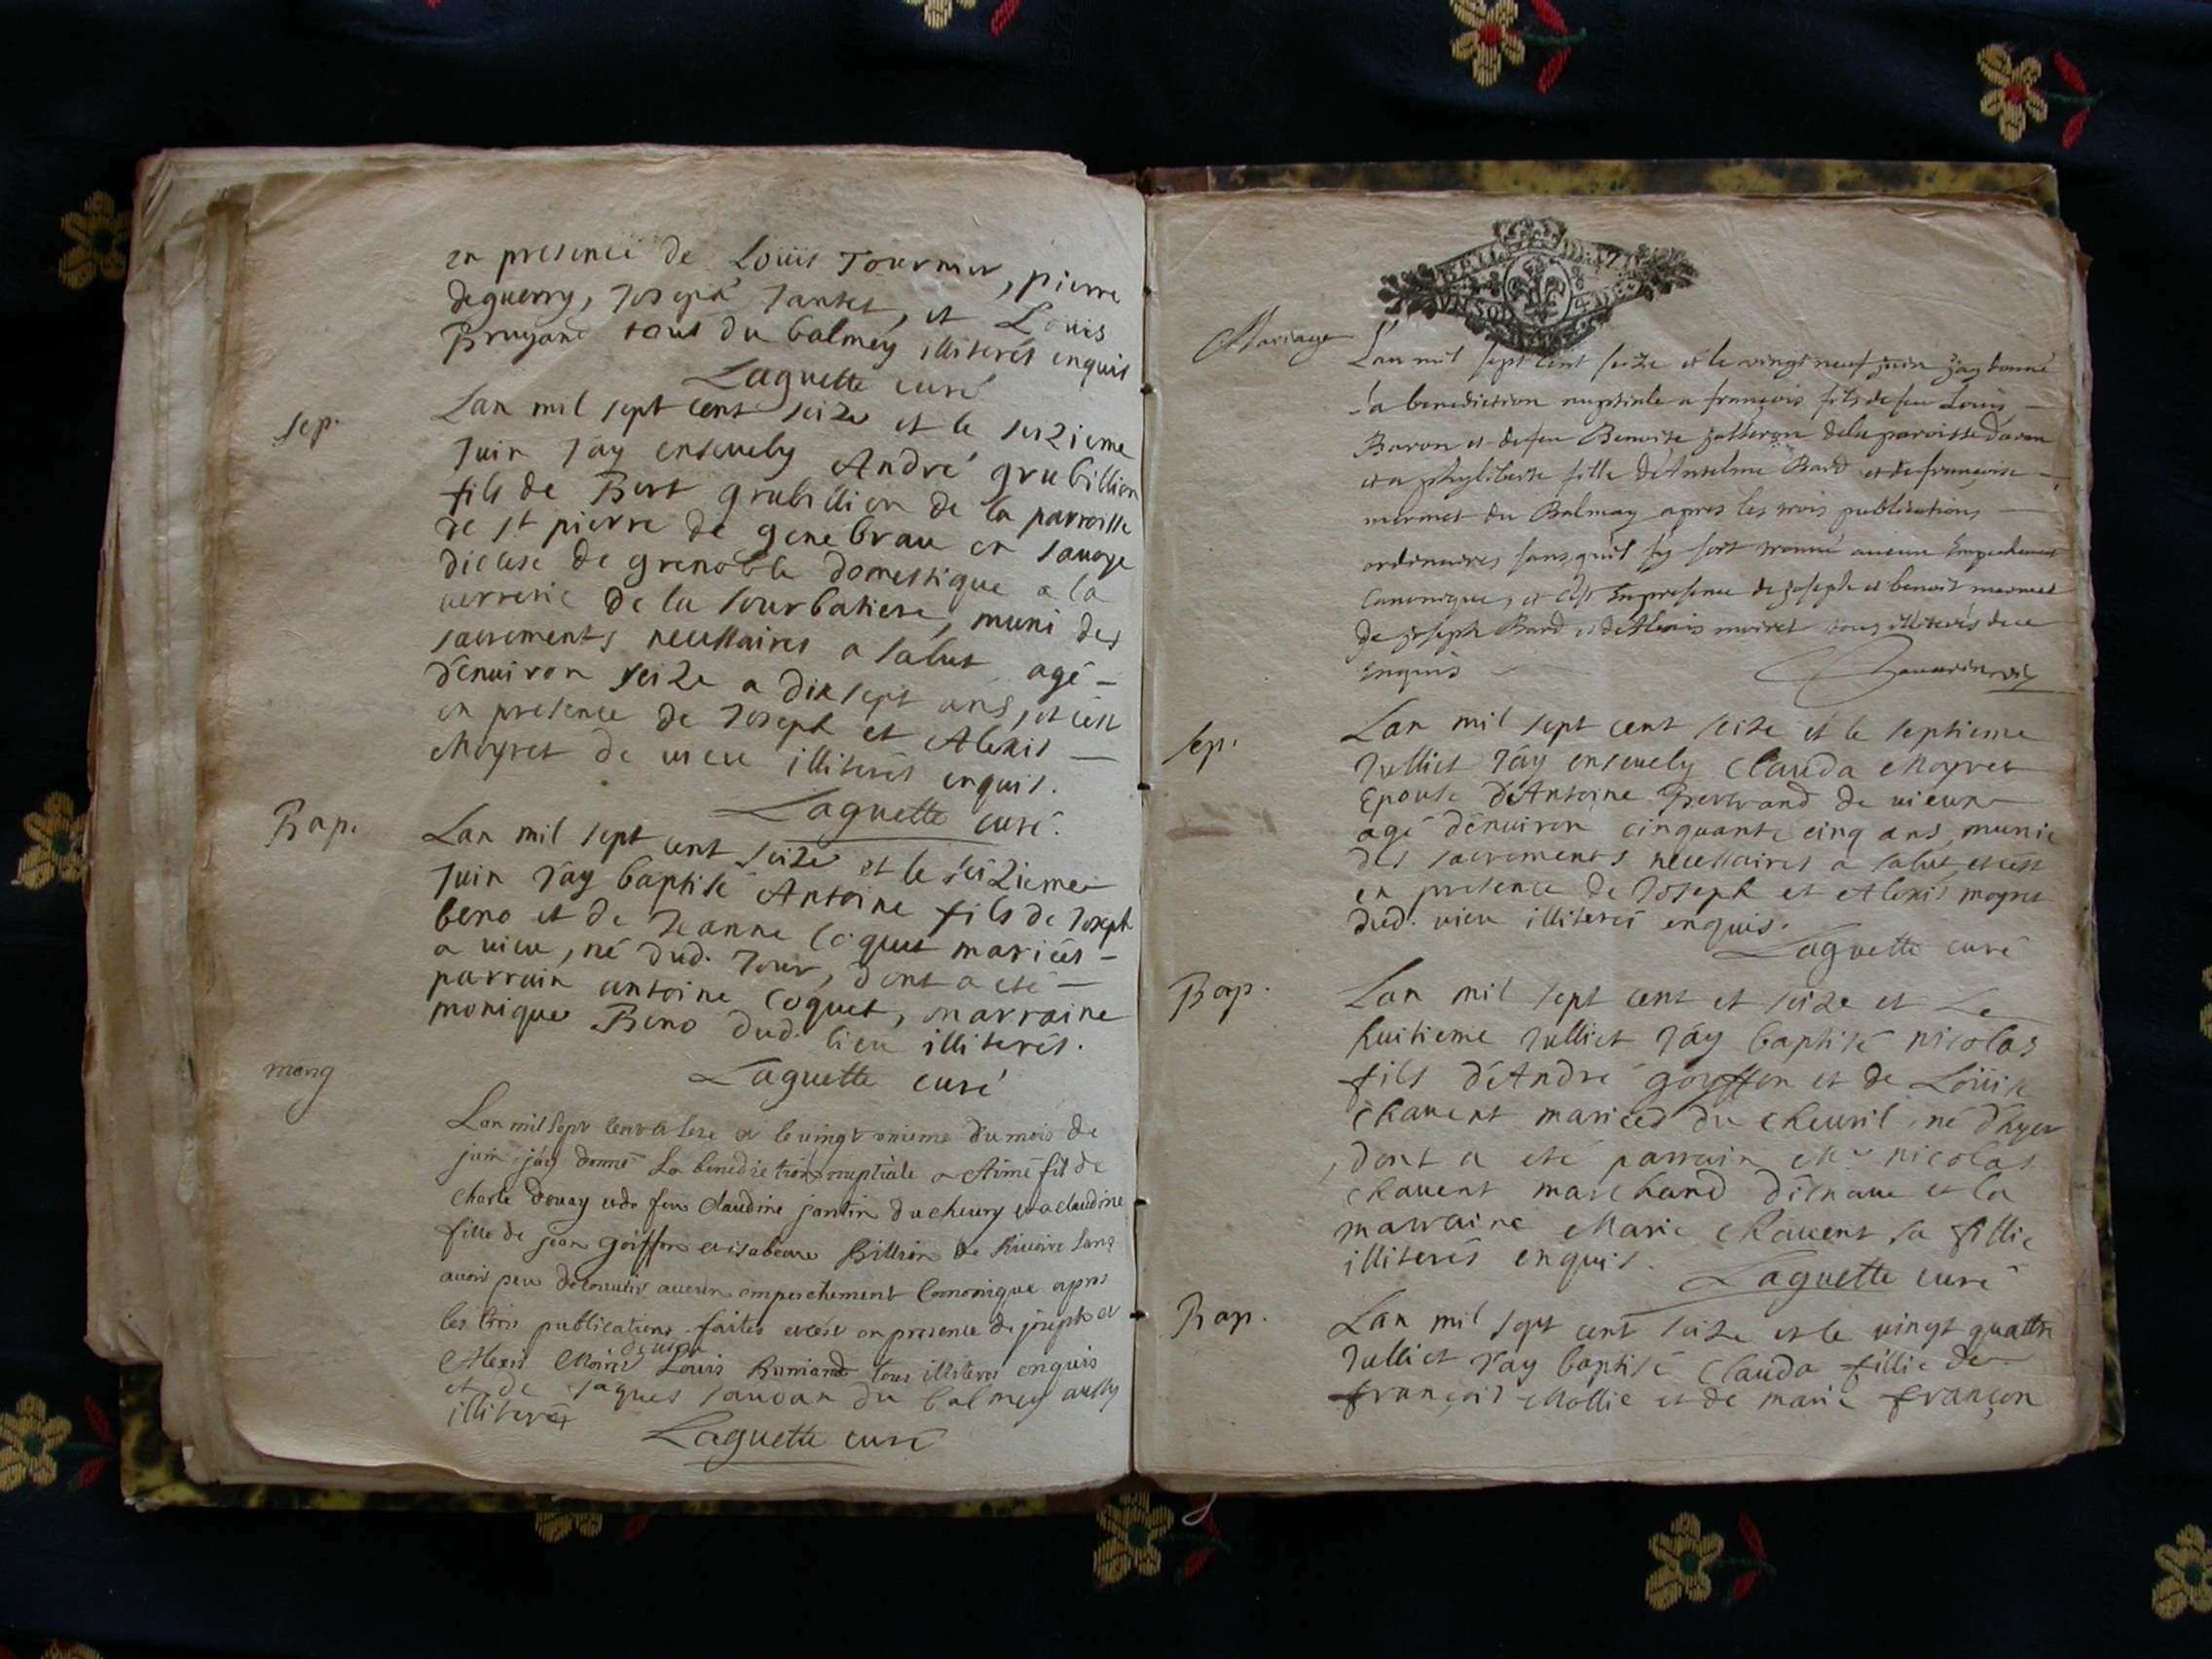 en presence de Loüis Tournier, pierre
deguerry, Joseph Jantet, et Louis
Bruyand tout du balmey illiterés enquis
Laguette curé
sep.
Lan mil sept cent seize et le seizieme
Juin J'ay ensevely André grubillion
fils de Bert grubillion de la parroisse
de st pierre de genebrau en savoye
diocese de grenoble domestique a la
verrerie de la tourbatiere, muni des
sacrements necessaires a salut agé
d'environ seize a dix sept ans, et c'est
en presence de Joseph et Alexis
Moyret de vieu illiterés enquis.
Laguette curé.
Bap.
Lan mil sept cent seize et le seizieme
Juin J'ay baptisé Antoine fils de Joseph
beno et de Jeanne Coquet mariés
a vieu, né dud. Jour, dont a eté
parrain antoine Coquet, marraine
monique Beno dud. lieu illiterés.
Laguette curé
mang
Lan mil sept cent et seze et le vingt onieme du mois de
juin j'ay donné La benediction nuptiale a Aimé fil de
Charle douay et de feu Claudine jantin du cheury et a claudine
fille de jean goiffon et isabeau Billion de Riuoire sans
auoir peu decouurir aucun empeschement Canonique apres
les trois publications faites et c'est en presence de joseph et
de vieu
Alexis Moiret Louis Bruniand tous illiteres enquis
et de Jaques Jaudan du balmey aussy
illiterés
Laguette curé
Mariage
L'an mil sept cent seize et le vingt neuf juin j'ay donné
la benediction nuptiale a françois fils de feu Louis
Baron et de feu Benoite gotheron de la paroisse d'aran
et a phyliberte fille d'Anselme Bard et de françoise
mermet du Balmay apres les trois publications
ordinaires sans quil s'y soit trouvé aucun Empechement
Canonique, et c'est En presence de joseph et benoit mermet
de joseph Bard et d'Alexis moiret tous illiterés de ce
Enquis
sep.
Lan mil sept cent seize et le septieme
Julliet J'ay ensevely Clauda Moyret
Epouse d'Antoine Bertrand de vieu
agé d'environ cinquante cinq ans, munie
des sacrements necessaires a salut, et c'est
en presence de Joseph et Alexis moyret
dud. vieu illiterés enquis.
Laguette curé
Bap.
Lan mil sept cent et seize et Le
huitieme Julliet J'ay baptisé nicolas
fils d'André goyffon et de Loüise
Chavent mariées du Cheuril, né d'hyer
, dont a eté parrain Mr nicolas
Chavent marchand d'isnave et la
marraine Marie Chavent sa fillie
illiterés enquis.
Laguette curé
Bap.
Lan mil sept cent seize et le vingt quattre
Julliet J'ay baptisé Clauda fillie de
françois Mollie et de marie françon